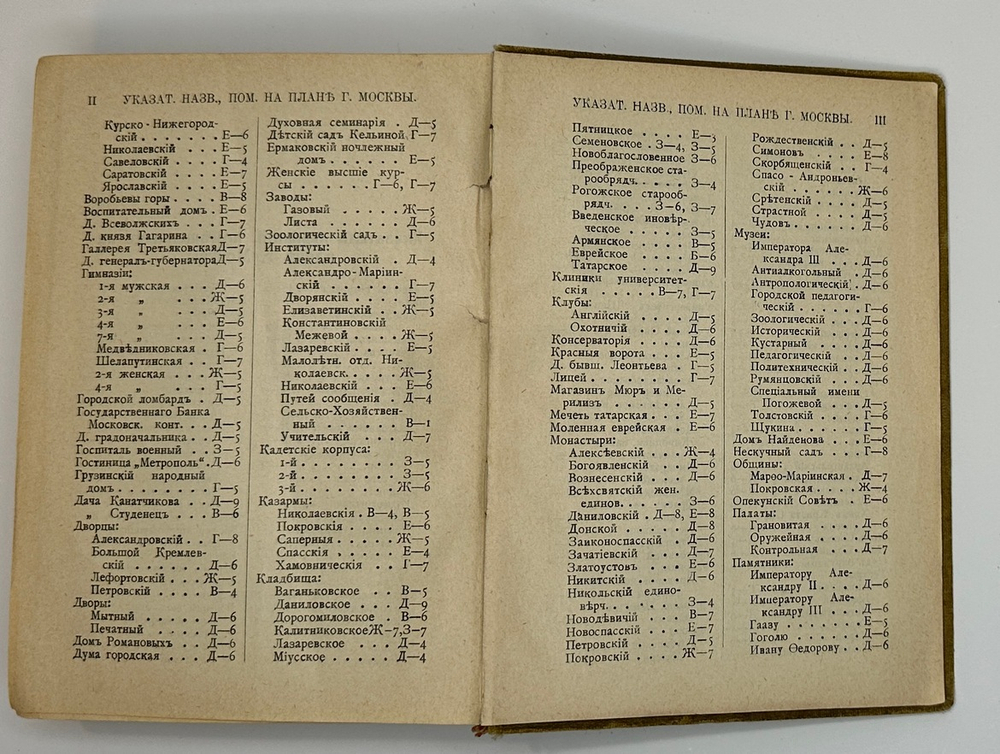 II УКАЗАТ. НАЗВ., ПОМ. НА ПЛАНѢ Г. МОСКВЫ.
Курско - Нижегород-
скій . . . . . . . . Е—6
Николаевскій . . . . Е—5
Савеловскій . . . . Г—4
Саратовскій . . . . Е—7
Ярославскій . . . . Е—5
Воробьевы горы . . . . В—8
Воспитательный домъ . . Е—6
Д. Всеволжскихъ . . . Г—7
Д. князя Гагарина . . Г—6
Галлерея ТретьяковскаяД—7
Д. генералъ-губернатораД—5
Гимназіи:
1-я мужская . . . . Д—6
2-я „ . . . . Ж—5
3-я „ . . . . Д—5
4-я „ . . . . Е—6
7-я „ . . . . Д—5
Медвѣдниковская . Г—6
Шелапутинская . . . Г—7
2-я женская . . . Ж—5
4-я „ . . . . Г—5
Городской ломбардъ . . Д—5
Государственнаго Банка
Московск. конт. . . Д—5
Д. градоначальника . . Д—5
Госпиталь военный . . З—5
Гостиница „Метрополь“ . Д—6
Грузинскій народный
домъ . . . . . . . . Г—5
Дача Канатчикова . . Д—9
„ Студенецъ . . . В—6
Дворцы:
Александровскій . . Г—8
Большой Кремлев-
скій . . . . . . . . Д—6
Лефортовскій . . . Ж—5
Петровскій . . . . В—4
Дворы:
Мытный . . . . . Д—6
Печатный . . . . Д—6
Домъ Романовыхъ . . Д—6
Дума городская . . . Д—6
Духовная семинарія . Д—5
Дѣтскій садъ Кельиной Г—7
Ермаковскій ночлежный
домъ . . . . . . . Е—5
Женскіе высшіе кур-
сы . . . . . . . Г—6, Г—7
Заводы:
Газовый . . . . . . Ж—5
Листа . . . . . . . Д—6
Зоологическій садъ . . Г—5
Институты:
Александровскій . . Д—4
Александро - Маріин-
скій . . . . . . . Г—7
Дворянскій . . . . Е—5
Елизаветинскій . . Ж—5
Константиновскій
Межевой . . . . . Ж—5
Лазаревскій . . . . Е—5
Малолѣтн. отд. Ни-
колаевск. . . . . . Ж—5
Николаевскій . . . Е—6
Путей сообщенія . . Д—4
Сельско-Хозяйствен-
ный . . . . . . . В—1
Учительскій . . . Д—7
Кадетскіе корпуса:
1-й . . . . . . . . З—5
2-й . . . . . . . . З—5
3-й . . . . . . . . Ж—6
Казармы:
Николаевскія . В—4, В—5
Покровскія . . . . Е—6
Саперныя . . . . . Ж—5
Спасскія . . . . . Е—4
Хамовническія . . Г—7
Кладбища:
Ваганьковское . . В—5
Даниловское . . . Д—9
Дорогомиловское . . В—6
КалитниковскоеЖ—7,З—7
Лазаревское . . . . Д—4
Міусское . . . . . Д—4
УКАЗАТ. НАЗВ., ПОМ. НА ПЛАНѢ Г. МОСКВЫ. III
Пятницкое . . . . Е—3
Семеновское . З—4, З—5
Новоблагословенное З—6
Преображенское ста-
рообрядч. . . . . . З—4
Рогожское старооб-
рядч. . . . З—6, З—7
Введенское иновѣр-
ческое . . . . . . З—5
Армянское . . . . В—5
Еврейское . . . . Б—6
Татарское . . . . Д—9
Клиники университет-
скія . . . . . В—7, Г—7
Клубы:
Англійскій . . . . Д—5
Охотничій . . . . Д—6
Консерваторія . . . . Д—6
Красныя ворота . . . . Е—5
Д. бывш. Леонтьева . . Г—5
Лицей . . . . . . . . Г—7
Магазин Мюръ и Ме-
рилизъ . . . . . . . Д—5
Мечеть татарская . . . Е—7
Моленная еврейская . . Е—6
Монастыри:
Алексѣевскій . . . Ж—4
Богоявленскій . . . Д—6
Вознесенскій . . . Д—6
Всѣхсвятскій жен.
единов. . . . . . . З—6
Даниловскій . Д—8, Е—8
Донской . . . . . . Д—8
Заиконоспасскій . . Д—6
Зачатіевскій . . . Д—7
Златоустовъ . . . . Е—6
Никитскій . . . . Д—6
Никольскій едино-
вѣрч. . . . . . . . З—4
Новодѣвичій . . . В—7
Новоспасскій . . . Е—7
Петровскій . . . . Д—5
Покровскій . . . . Ж—7
Рождественскій . . Д—5
Симоновъ . . . . . Е—8
Скорбященскій . . Г—4
Спасо - Андроньев-
скій . . . . . . . Ж—6
Срѣтенскій . . . . Д—5
Страстной . . . . Д—5
Чудовъ . . . . . . Д—6
Музеи:
Императора Але-
ксандра III . . . . Д—6
Антиалкогольный . Д—6
Антропологическій . Д—6
Городской педагоги-
ческій . . . . . . Г—6
Зоологическій . . . Д—6
Историческій . . . Д—6
Кустарный . . . . Д—6
Педагогическій . . Д—6
Политехническій . . Д—6
Румянцовскій . . . Д—6
Спеціальный имени
Погожевой . . . . Д—5
Толстовскій . . . . Г—6
Щукина . . . . . . Г—5
Домъ Найденова . . . Е—6
Нескучный садъ . . . Г—8
Общины:
Марѳо-Маріинская . Д—7
Покровская . . . . Ж—4
Опекунскій Совѣтъ . . Е—6
Палаты:
Грановитая . . . . Д—6
Оружейная . . . . Д—6
Контрольная . . . Д—7
Памятники:
Императору Але-
ксандру II . . . . Д—6
Императору Але-
ксандру III . . . . Д—6
Гаазу . . . . . . Е—5
Гоголю . . . . . . Д—6
Ивану Ѳедорову . . Д—6